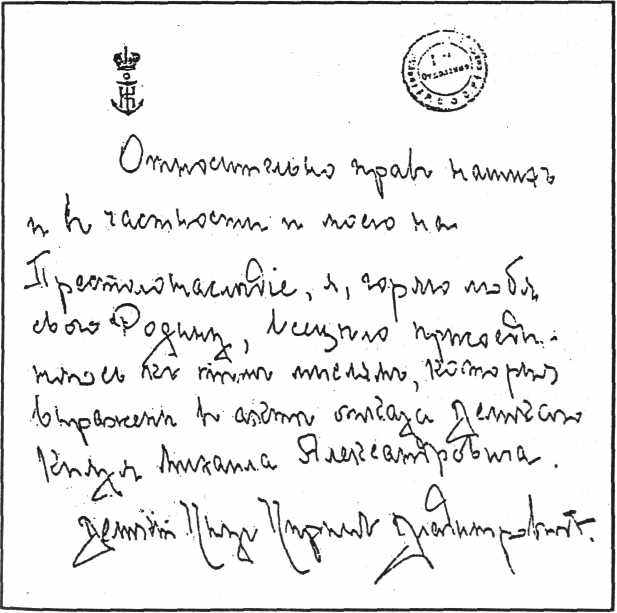 Относительно правъ нашихъ
и въ частности и моего на
Престолонаслѣдіе, я, горячо любя
свою Родину, всецѣло присоеди-
няюсь къ тѣмъ мыслямъ, которыя
выражены въ актѣ отказа Великаго
Князя Михаила Александровича.
Великій Князь Кириллъ Владиміровичъ.